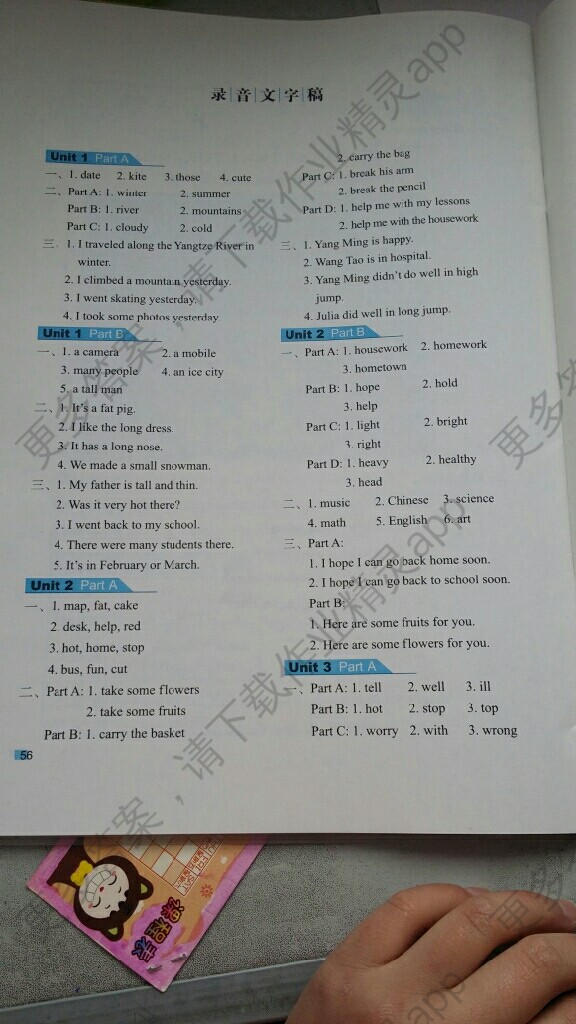 录音文字稿
Unit 1 Part A
一、1. date 2. kite 3. those 4. cute
二、Part A: 1. winter 2. summer
Part B: 1. river 2. mountains
Part C: 1. cloudy 2. cold
三、1. I traveled along the Yangtze River in
winter.
2. I climbed a mountain yesterday.
3. I went skating yesterday.
4. I took some photos yesterday.
Unit 1 Part B
一、1. a camera 2. a mobile
3. many people 4. an ice city
5. a tall man
二、1. It's a fat pig.
2. I like the long dress.
3. It has a long nose.
4. We made a small snowman.
三、1. My father is tall and thin.
2. Was it very hot there?
3. I went back to my school.
4. There were many students there.
5. It's in February or March.
Unit 2 Part A
一、1. map, fat, cake
2. desk, help, red
3. hot, home, stop
4. bus, fun, cut
二、Part A: 1. take some flowers
2. take some fruits
Part B: 1. carry the basket
56
2. carry the bag
Part C: 1. break his arm
2. break the pencil
Part D: 1. help me with my lessons
2. help me with the housework
三、1. Yang Ming is happy.
2. Wang Tao is in hospital.
3. Yang Ming didn't do well in high
jump.
4. Julia did well in long jump.
Unit 2 Part B
一、Part A: 1. housework 2. homework
3. hometown
Part B: 1. hope 2. hold
3. help
Part C: 1. light 2. bright
3. right
Part D: 1. heavy 2. healthy
3. head
二、1. music 2. Chinese 3. science
4. math 5. English 6. art
三、Part A:
1. I hope I can go back home soon.
2. I hope I can go back to school soon.
Part B:
1. Here are some fruits for you.
2. Here are some flowers for you.
Unit 3 Part A
一、Part A: 1. tell 2. well 3. ill
Part B: 1. hot 2. stop 3. top
Part C: 1. worry 2. with 3. wrong
课程表
更多答案，请下载作业精灵app
更多答案，请下载作业精灵app
更多